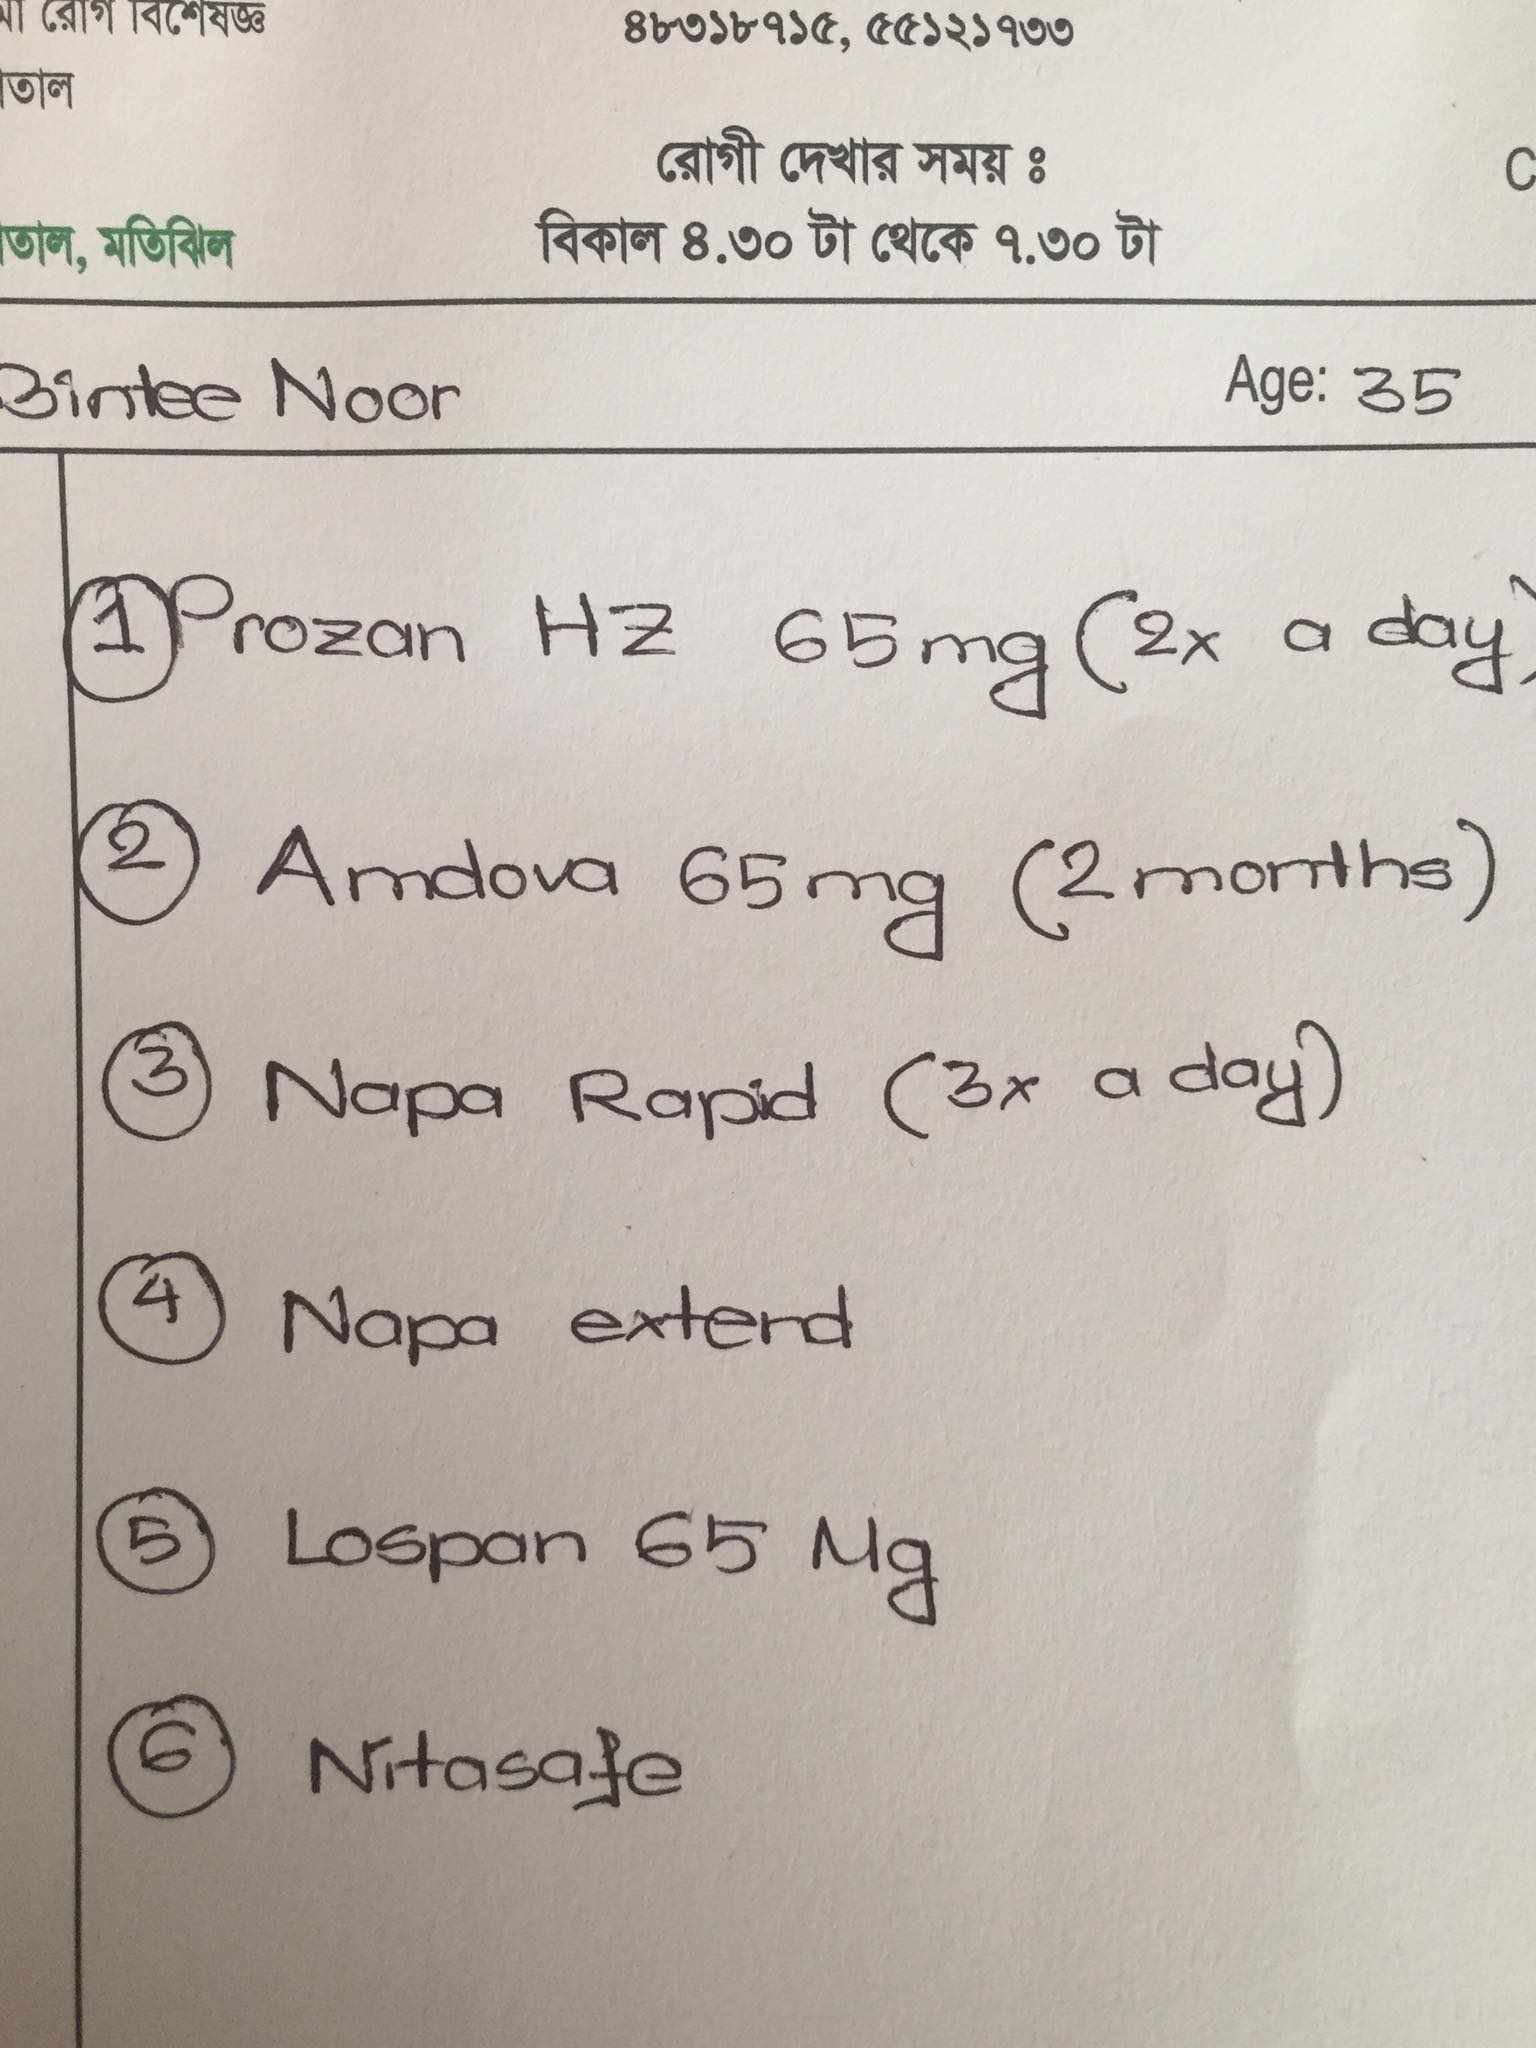 রোগ বিশেষজ্ঞ
৪৮৩১৮৭১৫, ৫৫১২১৭৩৩
তাল
রোগী দেখার সময় ঃ
তাল, মতিঝিল
বিকাল ৪.৩০ টা থেকে ৭.৩০ টা
Bintee Noor Age: 35
1 Prozan HZ 65mg (2x a day)
2 Amdova 65mg (2 months)
3 Napa Rapid (3x a day)
4 Napa extend
5 Lospan 65 Mg
6 Nitasafe